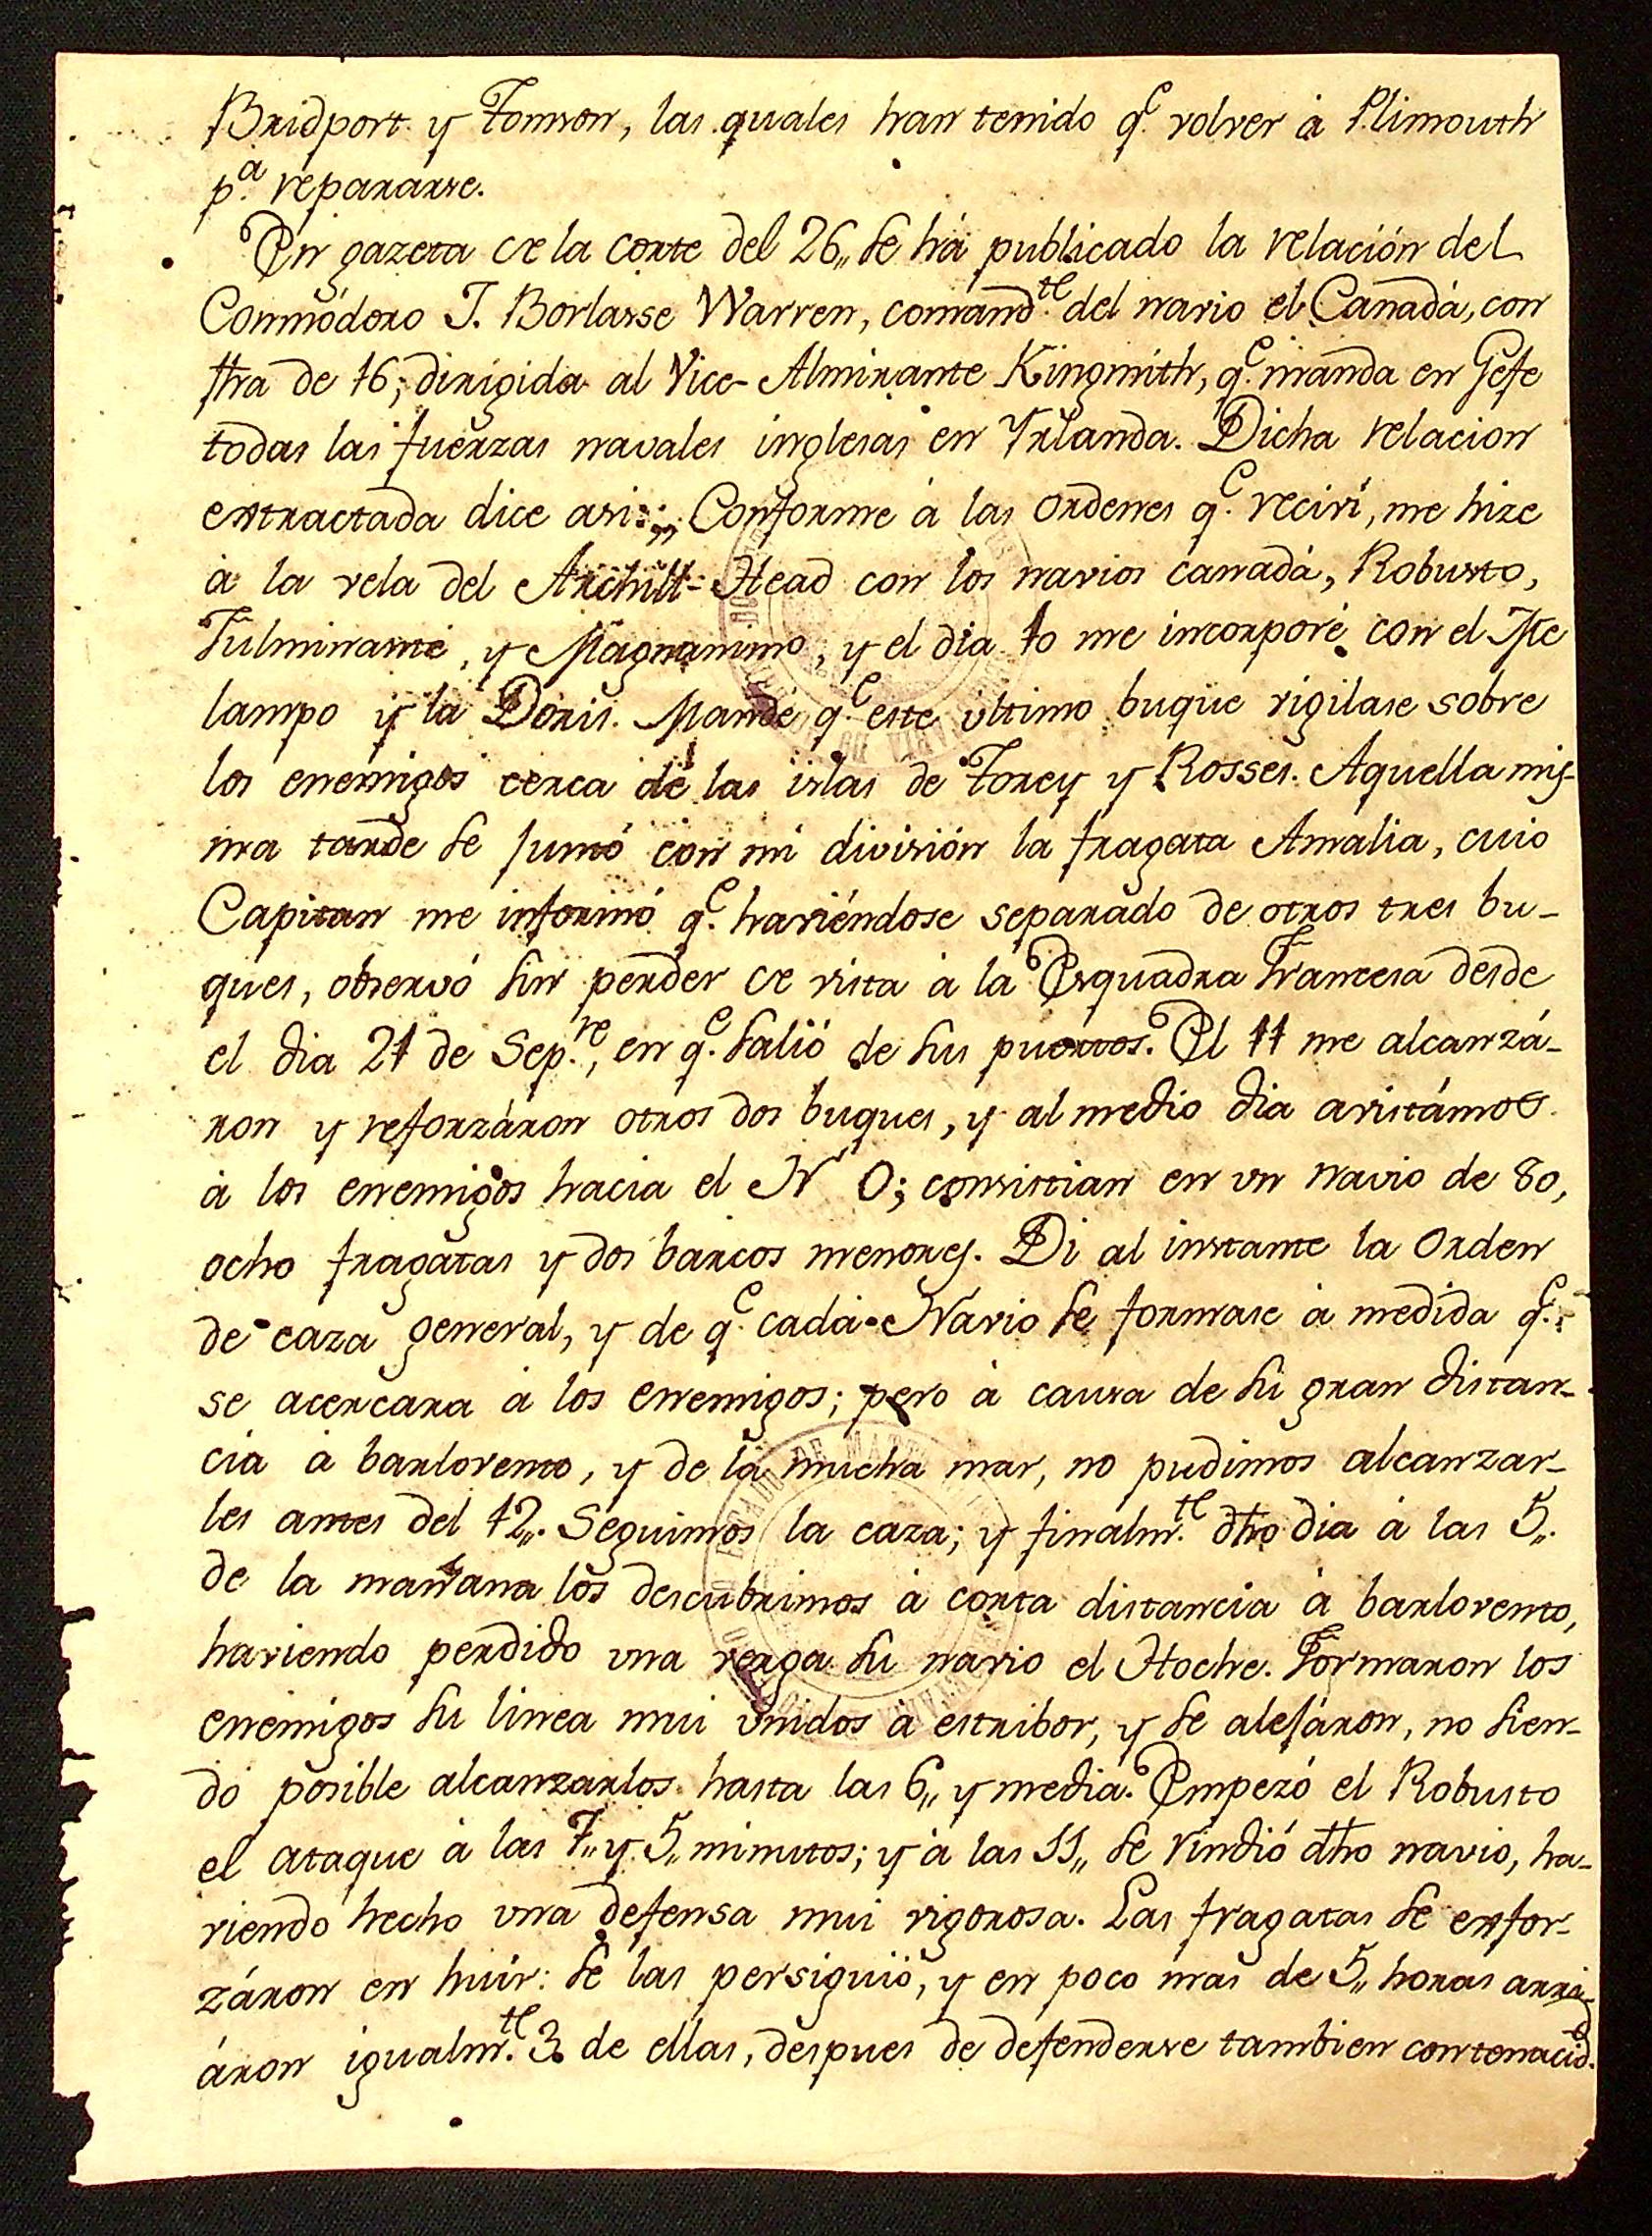 Bridport y Tomson, las quales han tenido q.e volver à Plimouth
p.a repararse.
En gazeta de la corte del 26,, se há publicado la relación del
Commódoro J. Borlasse Warren, comand.te del navio el Canadá, con
ftra de 16; dirigida al Vice-Almirante Kingmith, q.e manda en Gefe
todas las fuerzas navales inglesas en Yrlanda. Dicha relacion
extractada dice asi:,, Conforme à las ordenes q.e reciví, me hize
à la vela del Archill-Head con los navios canadá, Robusto,
Fulminante, y Magnanimo, y el dia 10 me incorporé con el Me
lampo y la Doris. Mandé q.e este ultimo buque vigilase sobre
los enemigos cerca de las islas de Torey y Rosses. Aquella mis-
ma tarde se juntó con mi división la fragata Amalia, cuio
Capitan me informó q.e haviéndose separado de otros tres bu-
ques, observó sin perder de vista à la Esquadra Francesa desde
el dia 21 de Sep.re, en q.e salió de sus puertos. El 11 me alcanzá-
ron y reforzáron otros dos buques, y al medio dia avistámos
à los enemigos hacia el N O; consistian en un navio de 80,
ocho fragatas y dos barcos menores. Di al instante la Orden
de caza general, y de q.e cada Navio se formase à medida q.e
se acercara à los enemigos; pero à causa de su gran distan-
cia à barlovento, y de la mucha mar, no pudimos alcanzar-
les antes del 12,,. Seguimos la caza; y finalm.te dho dia à las 5,,
de la mañana los descubrimos à corta distancia à barlovento,
haviendo perdido una verga su navio el Hoche. Formaron los
enemigos su linea mui unidos à estribor, y se alejáron, no sien-
do posible alcanzarlos hasta las 6,, y media. Empezó el Robusto
el ataque à las 7,, y 5,, minutos; y à las 11,, se rindió dho navio, ha-
viendo hecho una defensa mui vigorosa. Las fragatas se esfor-
záron en huir: se las persiguió, y en poco mas de 5,, horas arri-
áron igualm.te 3 de ellas, despues de defenderse tambien con tenacid.d